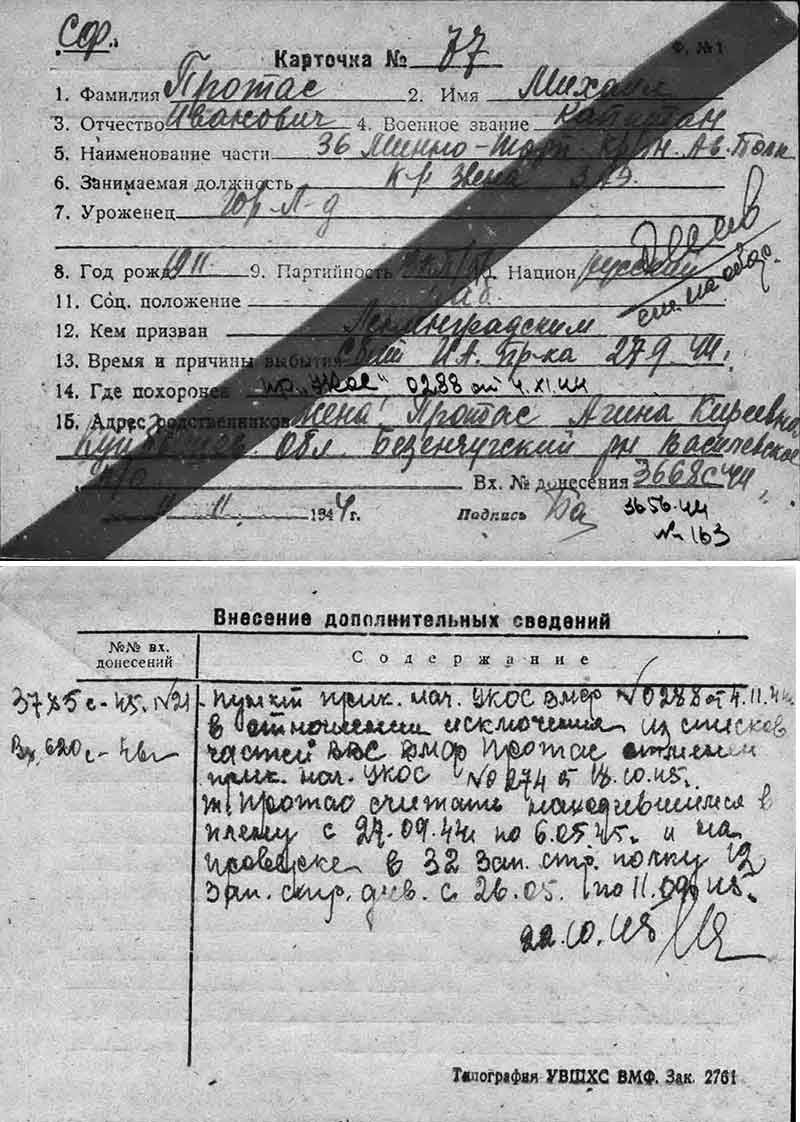 Сф.
Карточка № 77
Ф. №1
1. Фамилия Протас 2. Имя Михаил
3. Отчество Иванович 4. Военное звание Капитан
5. Наименование части 36 Минно-Торп. Кр/зн. Ав. Полк
6. Занимаемая должность К-р Звена 3 АЭ.
7. Уроженец гор. Л-д
8. Год рожд 1911 9. Партийность Национ. русский
см. на обор.
11. Соц. положение раб
12. Кем призван Ленинградским
13. Время и причины выбытия Сбит И.А. Пр-ка 27.9.44.
14. Где похоронен пр. "УКОС", 0288 от 4.XI.44
15. Адрес родственников жена Протас Агина Киреевна
Куйбышев. Обл. Безенчугский рн Василевское
п/о Вх. № донесения 3668с 44
11 11 1944 г. Подпись 3656-44
№ 163
Внесение дополнительных сведений
№№ вх. донесений Содержание
3785с-45. №21 Пункт прик. нач. УКОС ВМФ №0288 от 4.11.44
в отношении исключения из списков
Вх. 620с-46г частей ВВС ВМФ Протас отменен
прик. нач. УКОС №0274 от 18.10.45.
т. Протас считать находившимся в
плену с 27.09.44 по 6.05.45. и на
проверке в 32 зап. стр. полку 12
зап. стр. див. с 26.05. по 11.09.45.
22.10.45
Типография УВШХС ВМФ. Зак. 2761